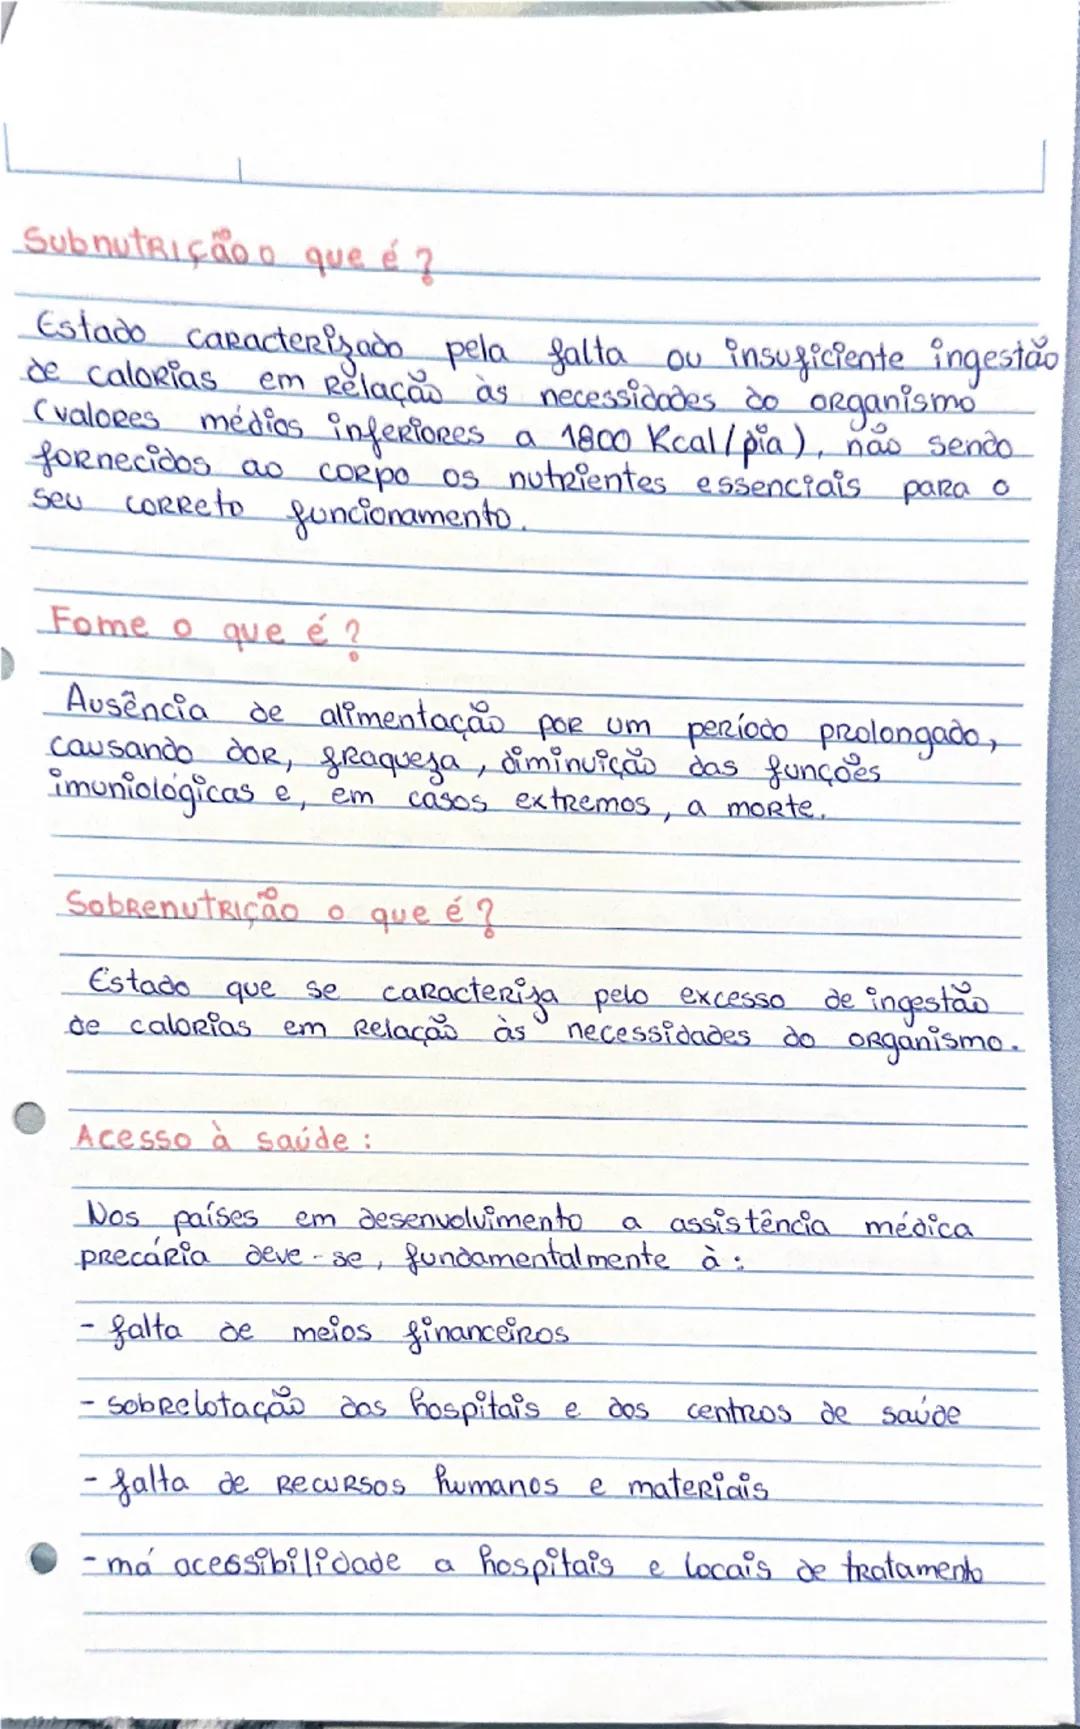 Subnutrição o que é?
Estado caracterizado pela falta ou insuficiente ingestão
de calorias em relação às necessidades do organismo
(valores médios inferiores a 1800 Kcal/dia), não sendo
fornecidos ao corpo os nutrientes essenciais para o
seu correto funcionamento.
Fome o que é?
Ausência de alimentação por um período prolongado,
causando dor, fraqueza, diminuição das funções
imuniológicas e, em casos extremos, a morte.
Sobrenutrição o que é?
Estado que se caracteriza pelo excesso de ingestão
de calorias em relação às necessidades do organismo.
Acesso à saúde:
Nos países em desenvolvimento a assistência médica
precária deve-se, fundamentalmente à:
- falta de meios financeiros
- sobrelotação dos hospitais e dos centros de saúde
- falta de recursos humanos e materiais
- má acessibilidade a hospitais e locais de tratamento